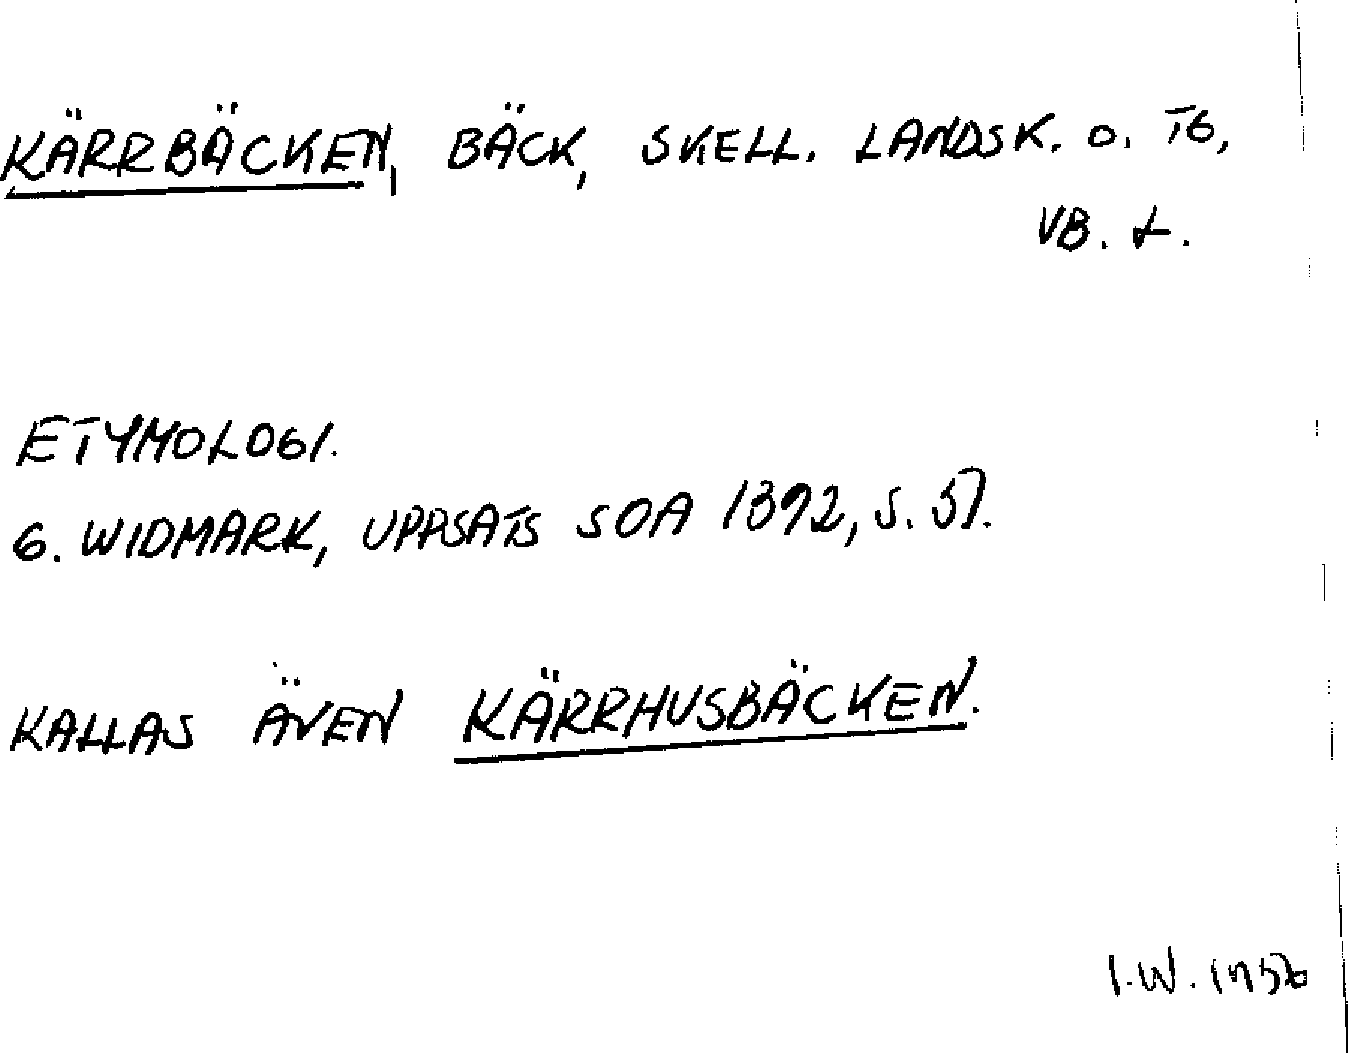 KÄRRBÄCKEN, BÄCK, SKELL. LANDSK. O. TG,
VB. L.
ETYMOLOGI.
G. WIDMARK, UPPSATS SOA 1392, S. 57.
KALLAS ÄVEN KÄRRHUSBÄCKEN.
I.W. 1956